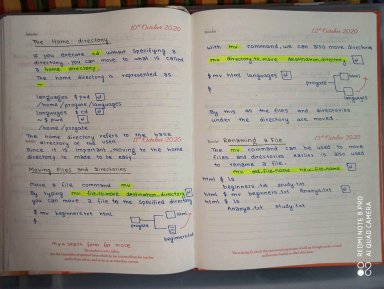 Saturday
10th October 2020
The Home directory
If you execute cd without specifying a
directory, you can move to what is called
a home directory.
The home directory is represented as
~
languages $ pwd
/home/progate/languages
languages $ cd
~ $ pwd
/home/progate
The home directory refers to the base
directory of the user.
11th October 2020
Since it is important, moving to the home
directory is made to be easy.
Moving Files and Directories
Move a file command mv
By typing mv file-to-move destination-directory
you can move a file to the specified directory
$ mv beginners.txt html
$
progate
html
beginners.txt
mv = short form for move
12th October 2020
with mv command, we can also move directories
mv directory-to-move destination-directory
$ mv html languages
$
progate
html
languages
By this all the files and directories
under the directory are moved.
Tuesday
13th October 2020
Renaming a File
The mv command can be used to move
files and directories earlier is also used
to rename a file.
mv old-file-name new-file-name
html $ ls
beginners.txt study.txt
html $ mv beginners.txt Ananya.txt
html $ ls
Ananya.txt study.txt
REDMI NOTE 8 PRO
AI QUAD CAMERA